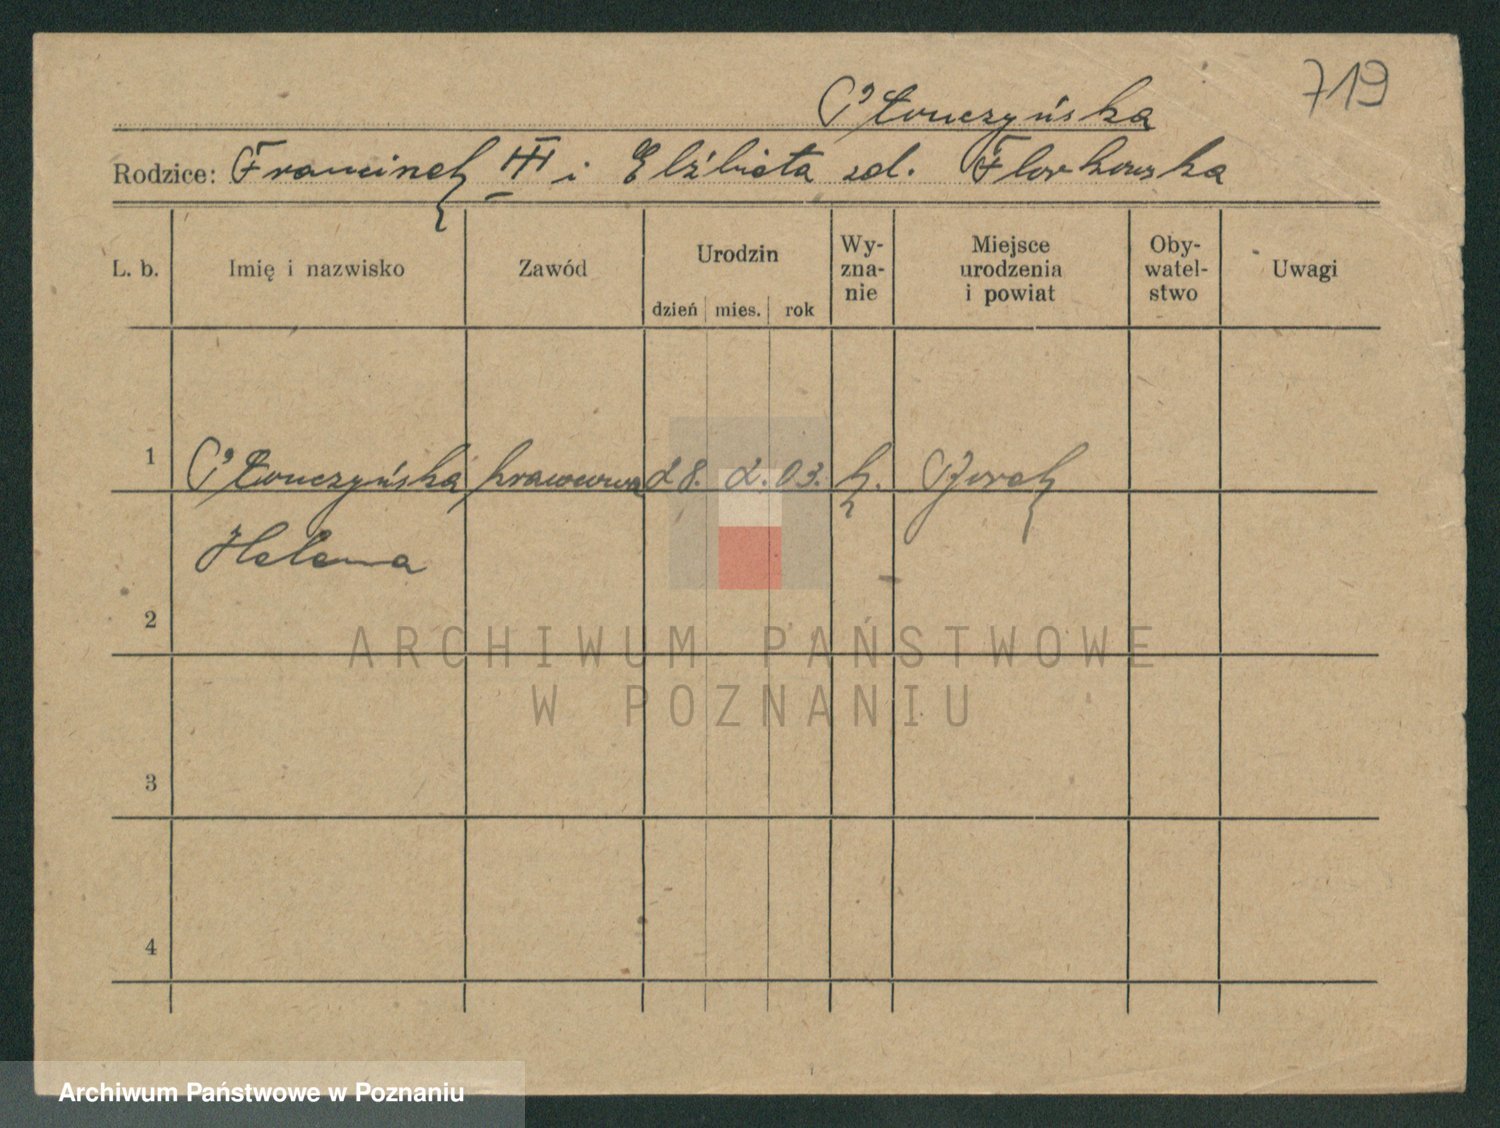 719
Płonczyńska
Rodzice: Franciszek III i Elżbieta zd. Florkowska
L. b. Imię i nazwisko Zawód Urodzin dzień mies. rok Wy- zna- nie Miejsce urodzenia i powiat Oby- watel- stwo Uwagi
1 Płonczyńska krawcowa 28. 2. 03. k. Borek
Helena
2
3
4
ARCHIWUM PAŃSTWOWE
W POZNANIU
Archiwum Państwowe w Poznaniu